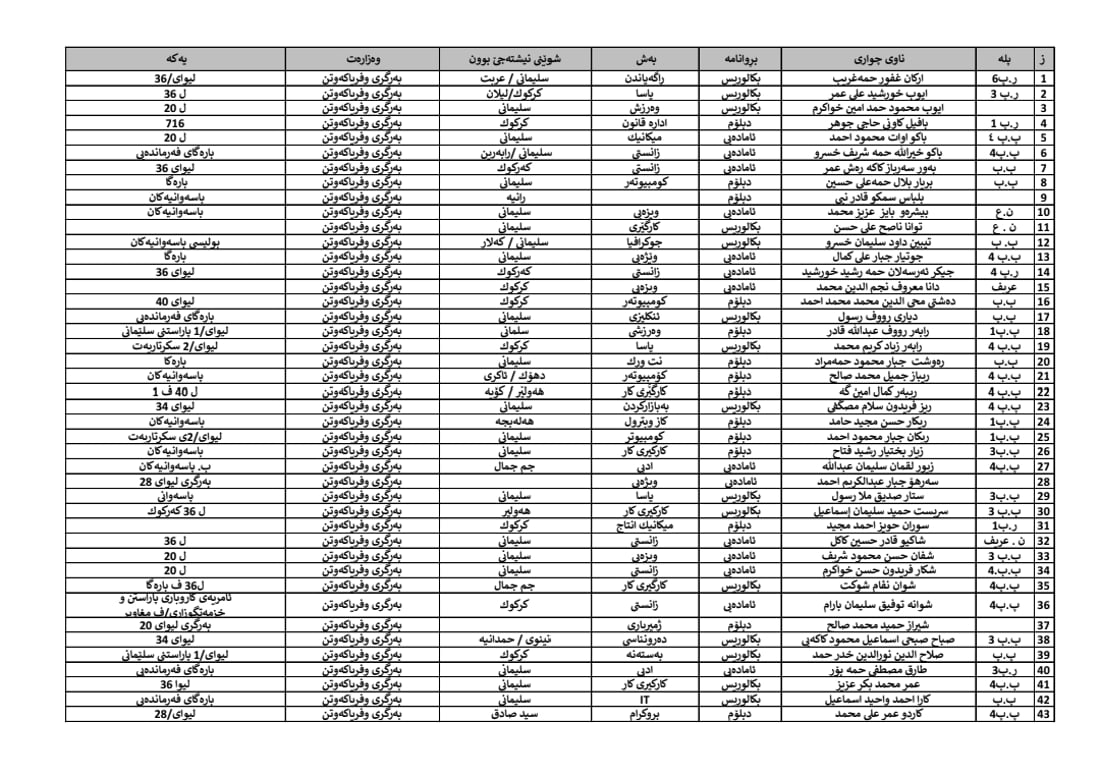 ز پلە ناوی چواری بروانامە بەش شوێنی نیشتەجێ بوون وەزارەت یەکە
1 ر.ب6 ارکان غفور حمەغریب بکالوریس راگەیاندن سلیمانی / عربت بەرگری وفریاکەوتن لیوای/36
2 ر.ب 3 ایوب خورشید علی عمر بکالوریس یاسا کرکوك/لیلان بەرگری وفریاکەوتن ل 36
3 ایوب محمود حمد امین خواکرم بکالوریس وەرزش سلیمانی بەرگری وفریاکەوتن ل 20
4 ر.ب 1 بافیل کاونی حاجی جوهر دبلۆم ادارە قانون کرکوك بەرگری وفریاکەوتن 716
5 ب.ب ٤ باکو اوات محمود احمد ئامادەیی میکانیك سلیمانی بەرگری وفریاکەوتن ل 20
6 ب.ب4 باکو خیراللە حمە شریف خسرو ئامادەیی زانستی سلیمانی /رابەرین بەرگری وفریاکەوتن بارەگای فەرماندەیی
7 ب.ب بەور سەرباز کاکە رەش عمر ئامادەیی زانستی کەرکوك بەرگری وفریاکەوتن لیوای 36
8 ب.ب بریار بلال حمەعلی حسین دبلۆم کومبیوتەر سلیمانی بەرگری وفریاکەوتن بارەگا
9 بلباس سمکو قادر نبی دبلۆم رانیە بەرگری وفریاکەوتن باسەوانیەکان
10 ن.ع بیشرەو بایز عزیز محمد ئامادەیی ویژەیی سلیمانی بەرگری وفریاکەوتن باسەوانیەکان
11 ن . ع توانا ناصح علی حسن بکالوریس کارگێری سلیمانی بەرگری وفریاکەوتن
12 ب. ب تیبین داود سلیمان خسرو بکالوریس جوکرافیا سلیمانی / کەلار بەرگری وفریاکەوتن بولیسی باسەوانیەکان
13 ب.ب 4 جوتیار جبار علی کمال ئامادەیی وێژەیی سلیمانی بەرگری وفریاکەوتن بارەگا
14 ر.ب 4 جیکر ئەرسەلان حمە رشید خورشید ئامادەیی زانستی کەرکوك بەرگری وفریاکەوتن لیوای 36
15 عریف دانا معروف نجم الدین محمد ئامادەیی ویژەیی کرکوك بەرگری وفریاکەوتن
16 ب.ب دەشتی محی الدین محمد محمد احمد دبلۆم کومبیوتەر کرکوك بەرگری وفریاکەوتن لیوای 40
17 ب.ب دیاری رووف رسول بکالوریس ئنکلیزی سلیمانی بەرگری وفریاکەوتن بارەگای فەرماندەیی
18 ب.ب1 رابەر رووف عبداللە قادر دبلۆم وەرزشی سلمانی بەرگری وفریاکەوتن لیوای/1 باراستنی سلێمانی
19 ب.ب 4 رابەر زیاد کریم محمد بکالوریس یاسا کرکوك بەرگری وفریاکەوتن لیوای/2 سکرتاریەت
20 ب.ب رەوشت جبار محمود حمەمراد دبلۆم نت ورك سلیمانی بەرگری وفریاکەوتن بارەکا
21 ب.ب 4 ریباز جمیل محمد صالح دبلۆم کۆمبیوتەر دهۆك / ئاکری بەرگری وفریاکەوتن باسەوانیەکان
22 ب.ب 4 ریبەر کمال امین گە دبلۆم کارگێری کار هەولێر / کۆیە بەرگری وفریاکەوتن ل 40 ف 1
23 ب.ب 4 ریز فریدون سلام مصگفی بکالوریس بەبازارکردن سلیمانی بەرگری وفریاکەوتن لیوای 34
24 ب.ب1 ریکار حسن مجید حامد دبلۆم کاز ویترول هەلەبجە بەرگری وفریاکەوتن باسەوانیەکان
25 ب.ب1 ریکان جبار محمود احمد دبلۆم کومبیوتر سلیمانی بەرگری وفریاکەوتن لیوای/2ی سکرتاریەت
26 ب.ب3 زیار بختیار رشید فتاح دبلۆم کارکیری کار سلیمانی بەرگری وفریاکەوتن باسەوانیەکان
27 ب.ب4 زیور لقمان سلیمان عبداللە ئامادەیی ادبی جم جمال بەرگری وفریاکەوتن ب. باسەوانیەکان
28 سەرهۆ جبار عبدالکریم احمد ئامادەیی ویژەیی بەرگری وفریاکەوتن بەرگری لیوای 28
29 ب.ب3 ستار صدیق ملا رسول بکالوریس یاسا سلیمانی بەرگری وفریاکەوتن باسەوانی
30 ب.ب 3 سربست حمید سلیمان إسماعیل بکالوریس کارکیری کار هەولیر بەرگری وفریاکەوتن ل 36 کەرکوك
31 ر.ب1 سوران حویز احمد مجید دبلۆم میکانیك انتاج کرکوك بەرگری وفریاکەوتن
32 ن . عریف شاکیو قادر حسین کاکل ئامادەیی زانستی سلیمانی بەرگری وفریاکەوتن ل 36
33 ب.ب 3 شفان حسن محمود شریف ئامادەیی ویزەیی سلیمانی بەرگری وفریاکەوتن ل 20
34 ب.ب.4 شکار فریدون حسن خواکرم ئامادەیی زانستی سلیمانی بەرگری وفریاکەوتن ل 20
35 ب.ب4 شوان نقام شوکت بکالوریس کارگیری کار جم جمال بەرگری وفریاکەوتن ل36 ف بارەگا
36 ب.ب4 شوانە توفیق سلیمان بارام ئامادەیی زانستی کرکوك بەرگری وفریاکەوتن ئامریەی کاروباری باراستن و
خزمەتگوزاری/ف مغاویر
37 شیراز حمید محمد صالح دبلۆم ژمیریاری بەرگری وفریاکەوتن بەرگری لیوای 20
38 ب.ب 3 صباح صبحی اسماعیل محمود کاکەیی بکالوریس دەروناسی نینوی / حمدانیە بەرگری وفریاکەوتن لیوای 34
39 ب.ب صلاح الدین نورالدین خدر حمد بکالوریس بەستەنە کرکوك بەرگری وفریاکەوتن لیوای/1 باراستنی سلێمانی
40 ر.ب3 طارق مصطفی حمە بۆر ئامادەیی ادبی سلیمانی بەرگری وفریاکەوتن بارەگای فەرماندەیی
41 ب.ب4 عمر محمد بکر عزیز بکالوریس کارکیری کار سلیمانی بەرگری وفریاکەوتن لیوا 36
42 ب.ب کارا احمد واحید اسماعیل بکالوریس IT سلیمانی بەرگری وفریاکەوتن بارەگای فەرماندەیی
43 ب.ب4 کاردو عمر علی محمد دبلۆم بروکرام سید صادق بەرگری وفریاکەوتن لیوای/28